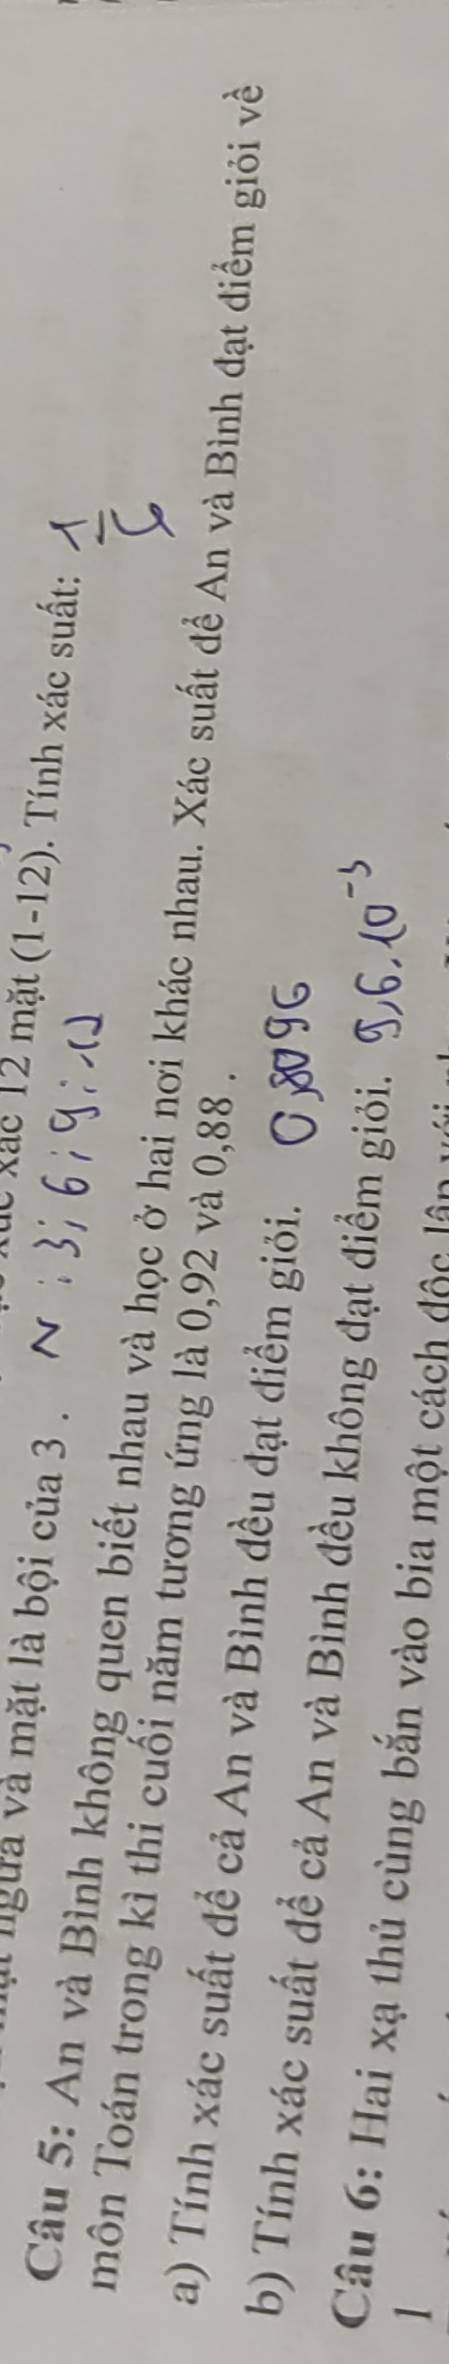 ngửa và mặt là bội của 3 . N : 3; 6; 9; 12
xác 12 mặt (1-12). Tính xác suất: 1/6
Câu 5: An và Bình không quen biết nhau và học ở hai nơi khác nhau. Xác suất để An và Bình đạt điểm giỏi về
môn Toán trong kì thi cuối năm tương ứng là 0,92 và 0,88 .
a) Tính xác suất để cả An và Bình đều đạt điểm giỏi. 0,8096
b) Tính xác suất để cả An và Bình đều không đạt điểm giỏi. 9,6.10⁻³
Câu 6: Hai xạ thủ cùng bắn vào bia một cách độc lập với
1